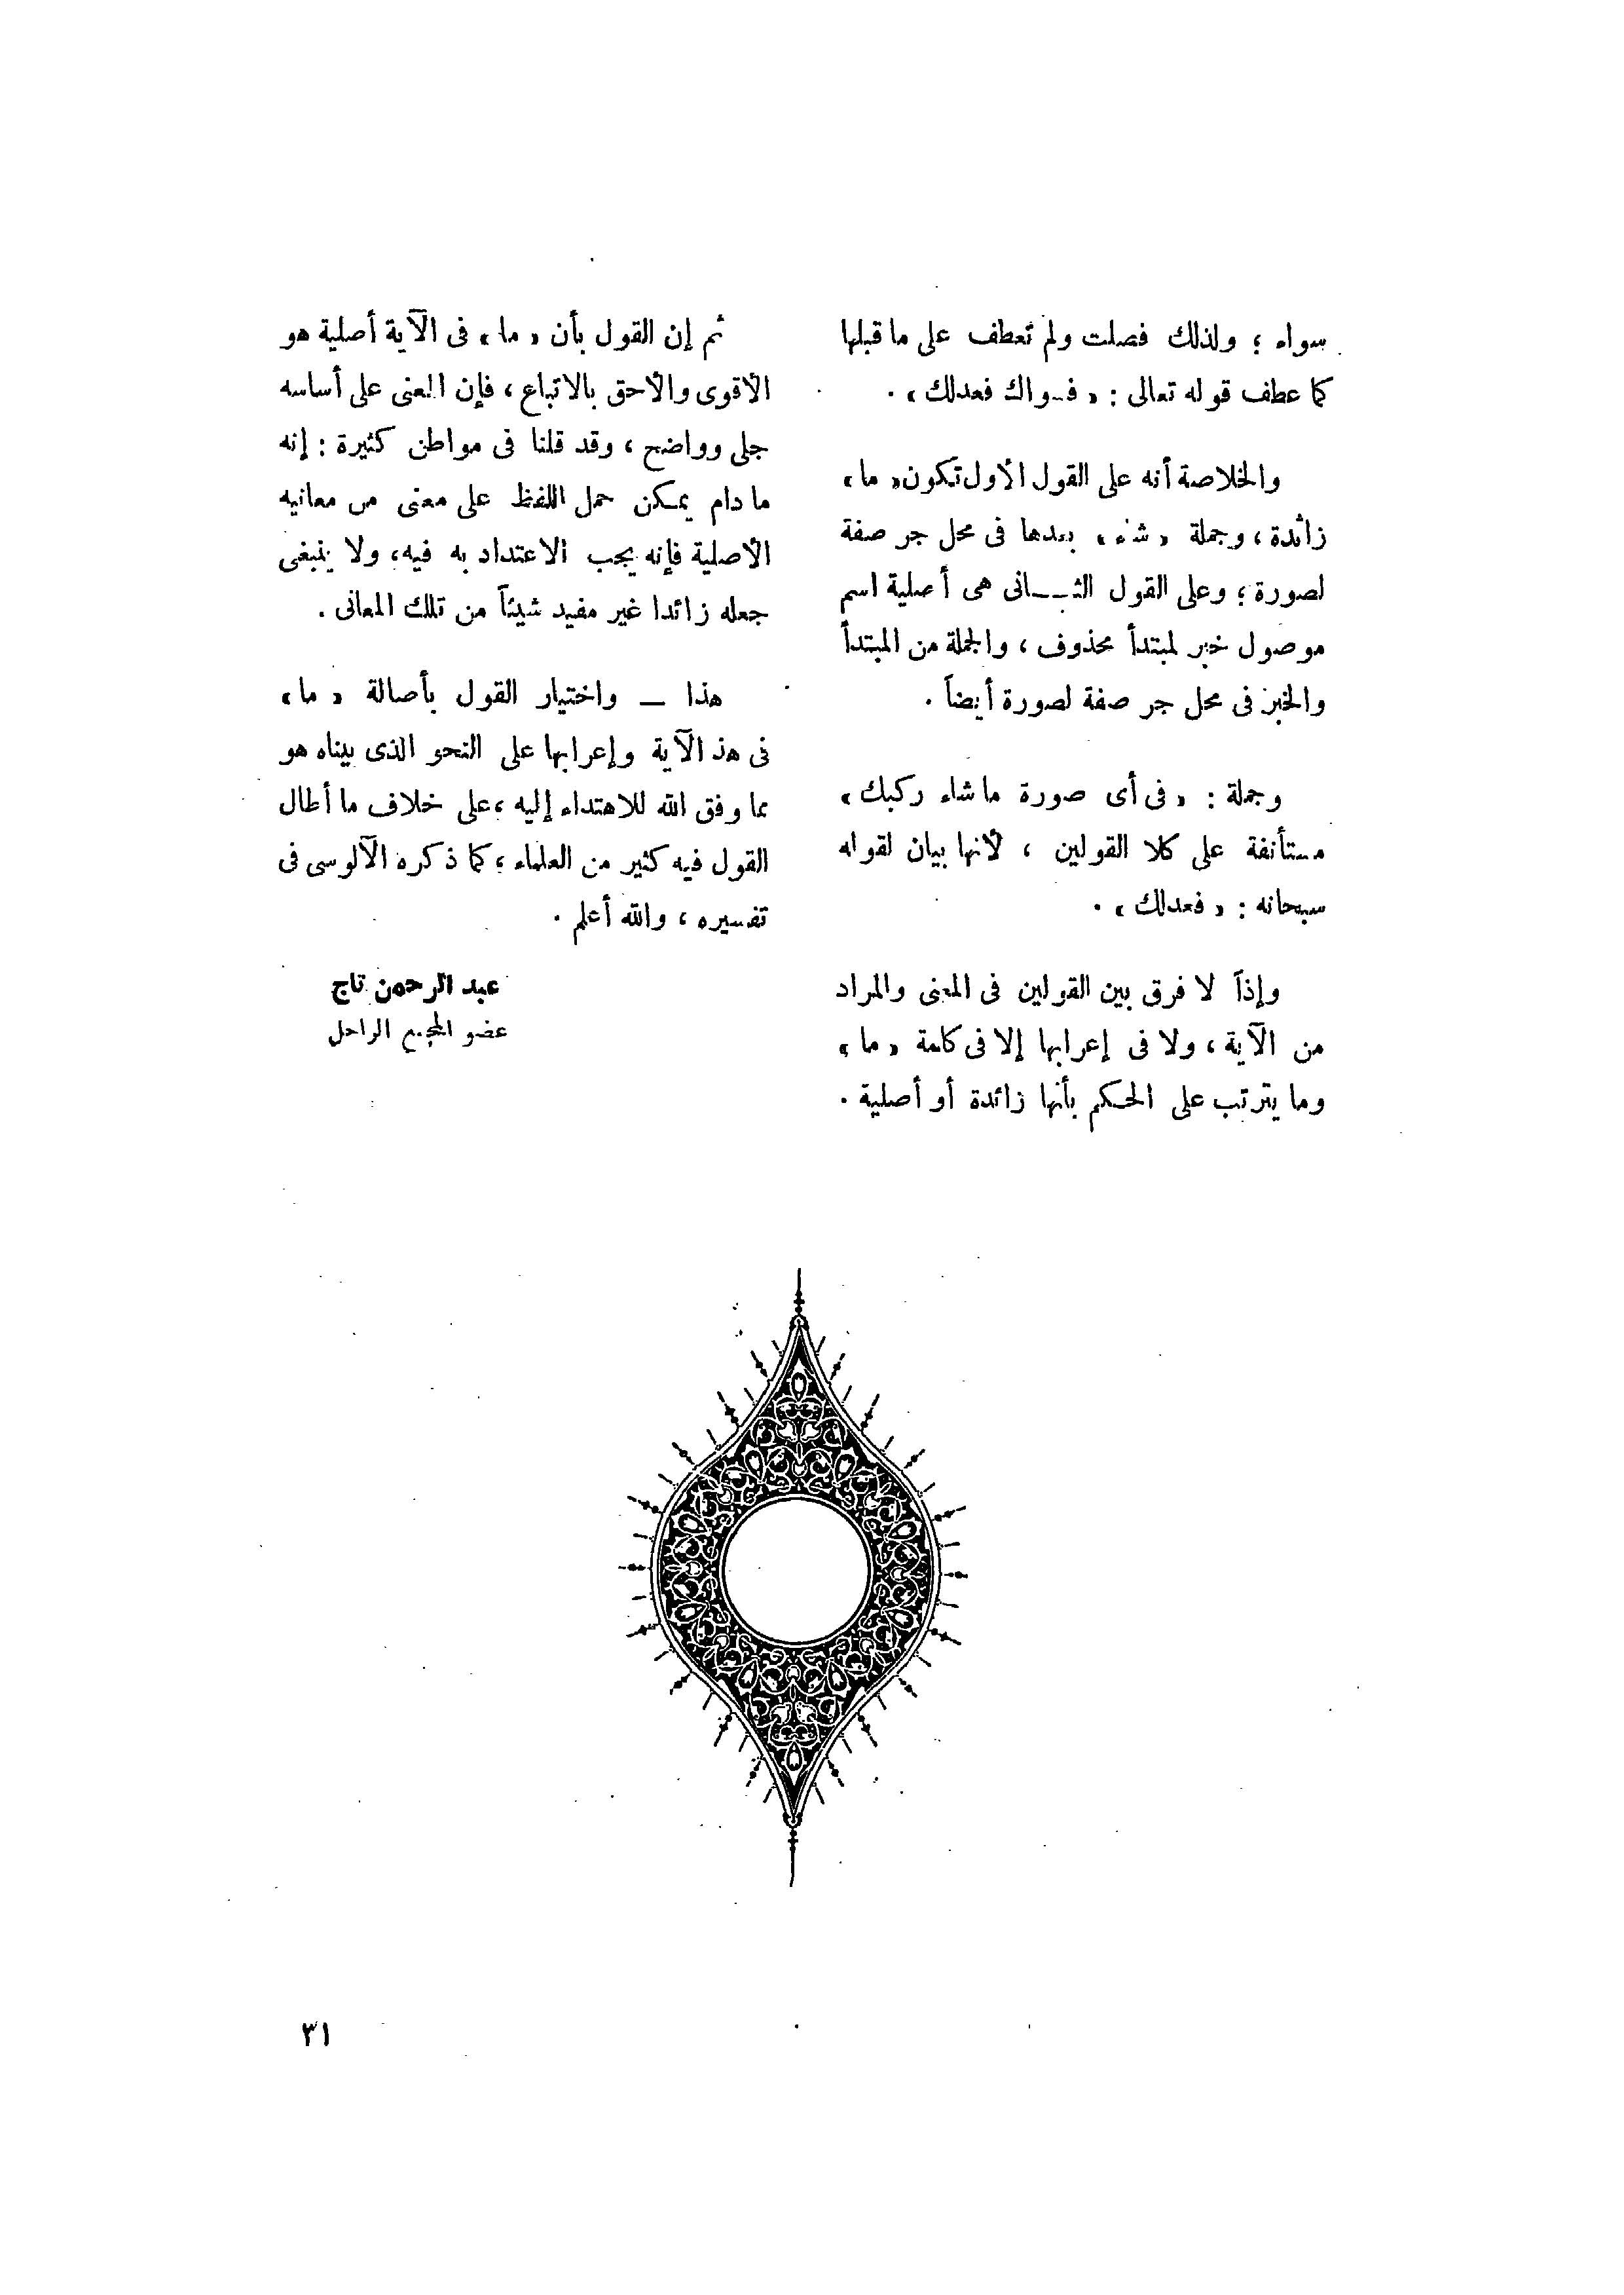 سواء ؛ ولذلك فصلت ولم تعطف على ما قبلها
كما عطف قوله تعالى : « فسواك فعدلك » .
والخلاصة أنه على القول الأول تكون « ما »
زائدة ، وجملة « شاء » بعدها فى محل جر صفة
لصورة ؛ وعلى القول الثــانى هى أصلية اسم
موصول خبر لمبتدأ محذوف ، والجملة من المبتدأ
والخبر فى محل جر صفة لصورة أيضاً .
وجملة : « فى أى صورة ما شاء ركبك »
مستأنفة على كلا القولين ، لأنها بيان لقوله
سبحانه : « فعدلك » .
وإذاً لا فرق بين القولين فى المعنى والمراد
من الآية ، ولا فى إعرابها إلا فى كلمة « ما »
وما يترتب على الحكم بأنها زائدة أو أصلية .
ثم إن القول بأن « ما » فى الآية أصلية هو
الأقوى والأحق بالاتباع ، فإن المعنى على أساسه
جلى وواضح ، وقد قلنا فى مواطن كثيرة : إنه
ما دام يمكن حمل اللفظ على معنى من معانيه
الأصلية فإنه يجب الاعتداد به فيه ، ولا ينبغى
جعله زائدا غير مفيد شيئاً من تلك المعانى .
هذا — واختيار القول بأصالة « ما »
فى هذ الآية وإعرابها على النحو الذى بيناه هو
مما وفق الله للاهتداء إليه ، على خلاف ما أطال
القول فيه كثير من العلماء ؛ كما ذكره الآلوسى فى
تفسيره ، والله أعلم .
عبد الرحمن تاج
عضو المجمع الراحل
٣١